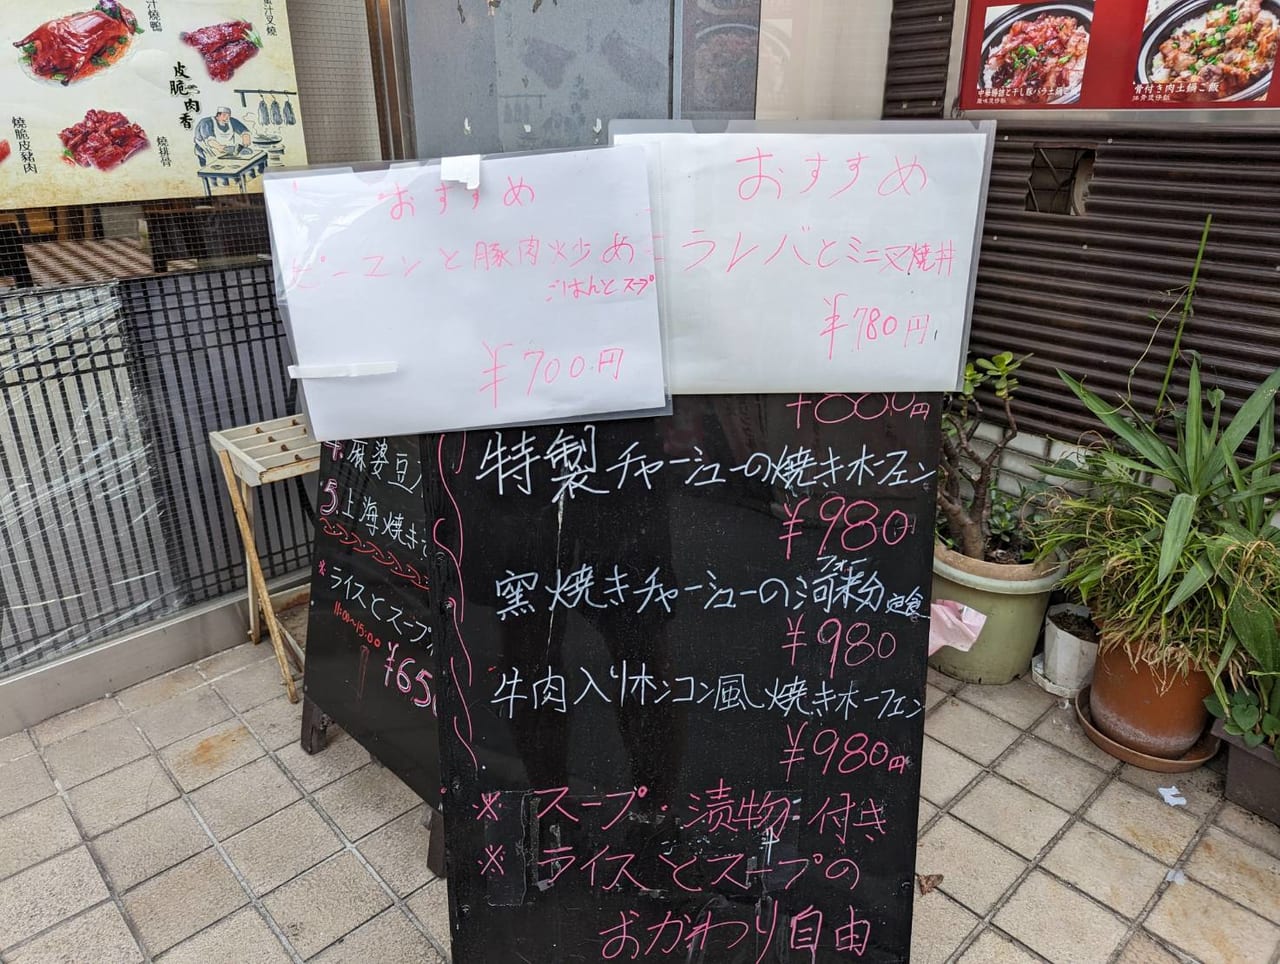 汁燒鴨
蜜汁叉燒
皮脆肉香
燒脆皮豬肉
燒排骨
骨付き肉土鍋ご飯
おすすめ
ピーマンと豚肉炒め
ごはんとスープ
¥700円
おすすめ
ニラレバとミニ叉焼丼
¥780円
特製チャーシューの焼きホーフェン
¥980
窯焼きチャーシューの河粉定食
フォー
¥980
牛肉入りホンコン風焼きホーフェン
¥980円
※スープ・漬物付き
※ライスとスープの
おかわり自由
麻婆豆
5.上海焼き
※ライスとスープ
11:00~15:00
¥65